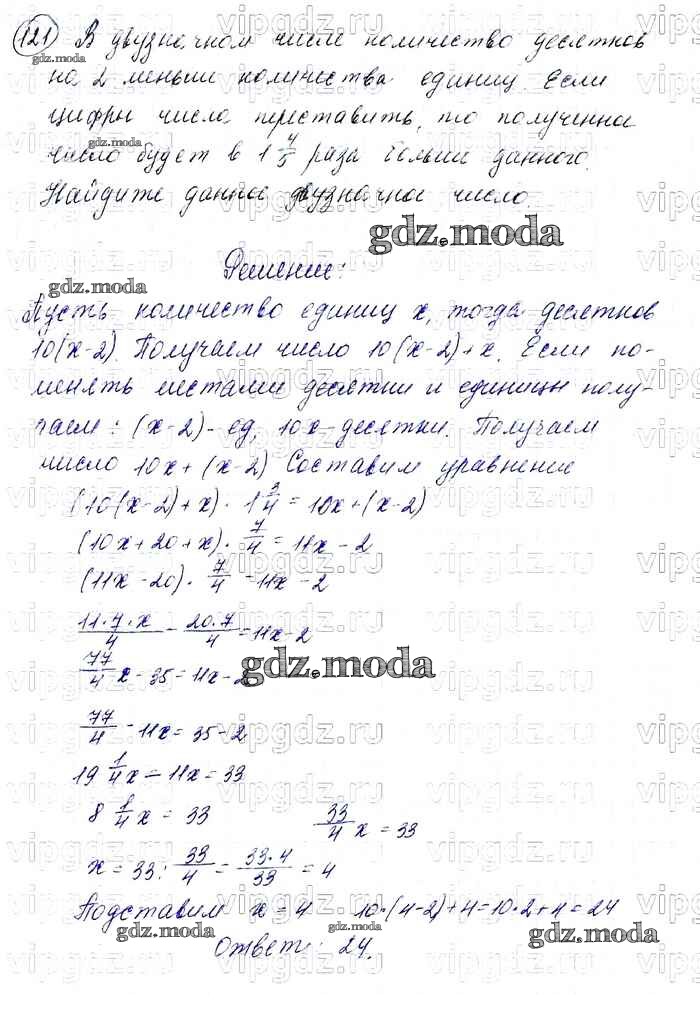 121 В двузначном числе количество десятков
на 2 меньше количества единиц. Если
цифры число переставить, то полученное
число будет в 1 4/5 раза больше данного.
Найдите данное двузначное число.
Решение:
Пусть количество единиц x, тогда десятков
10(x-2). Получаем число 10(x-2)+x. Если по-
менять местами десятки и единицы полу-
чаем: (x-2)- ед, 10x-десятки. Получаем
число 10x+(x-2) Составим уравнение
(10(x-2)+x) · 1 3/4 = 10x+(x-2)
(10x+20+x) · 7/4 = 11x-2
(11x-20) · 7/4 = 11x-2
11·7·x/4 - 20·7/4 = 11x-2
77/4 x - 35 = 11x-2
77/4 - 11x = 35-2
19 1/4 x - 11x = 33
8 1/4 x = 33 33/4 x = 33
x = 33 : 33/4 = 33·4/33 = 4
Подставим x = 4 10·(4-2)+4=10·2+4=24
Ответ: 24.
gdz.moda
vipgdz.ru